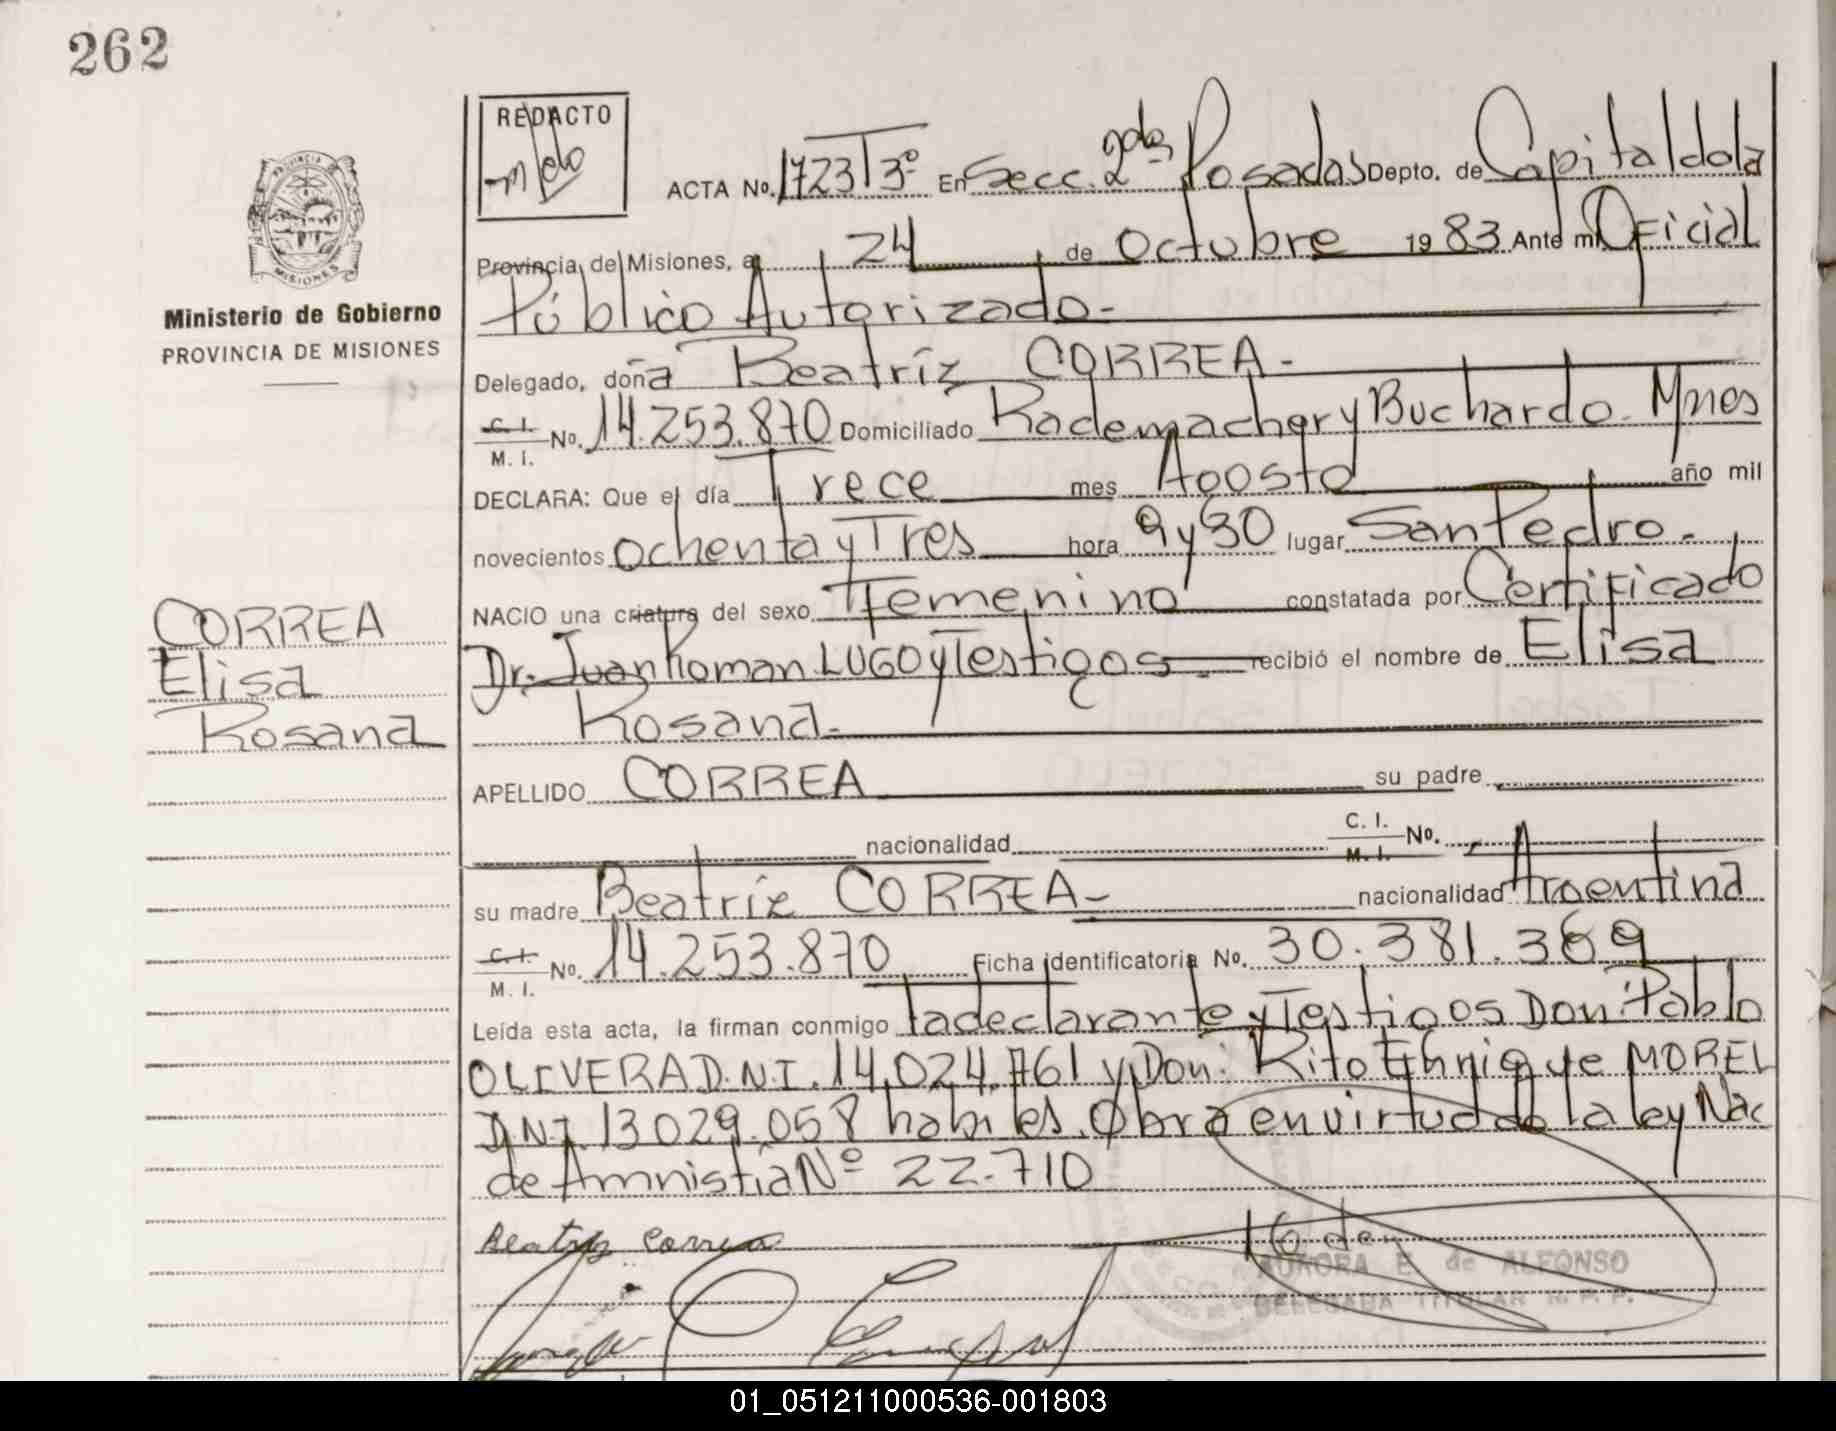 262
REDACTO
Melo
ACTA No. 1723 T 3º En Secc. 2da Posadas Depto. de Capital dela
Provincia de Misiones, a 24 de Octubre 1983 Ante mi Oficial
Público Autorizado-
Ministerio de Gobierno
PROVINCIA DE MISIONES
Delegado, doña Beatríz CORREA-
C. I.
M. I. No. 14.253.870 Domiciliado Rademacher y Buchardo. Mnes
DECLARA: Que el día Trece mes Agosto año mil
novecientos ochenta y Tres hora 9 y 30 lugar San Pedro.-
NACIO una criatura del sexo Femenino constatada por Certificado
Dr. Juan Roman LUGO y Testigos.- recibió el nombre de Elisa
Rosana.
CORREA
Elisa
Rosana
APELLIDO CORREA su padre
nacionalidad C. I.
M. I. No.
su madre Beatríz CORREA- nacionalidad Argentina
C. I.
M. I. No. 14.253.870 Ficha identificatoria No. 30.381.369
Leída esta acta, la firman conmigo la declarante y Testigos Don: Pablo
OLIVERA D.N.I. 14.024.761 y Don: Rito Enrique MOREL
D.N.I. 13029.058 habiles. Obra en virtud de la ley Nac
de Amnistia Nº 22.710
Beatriz Correa
16 de
AURORA E. de ALFONSO
DELEGADA TITULAR R. P. P.
01_051211000536-001803